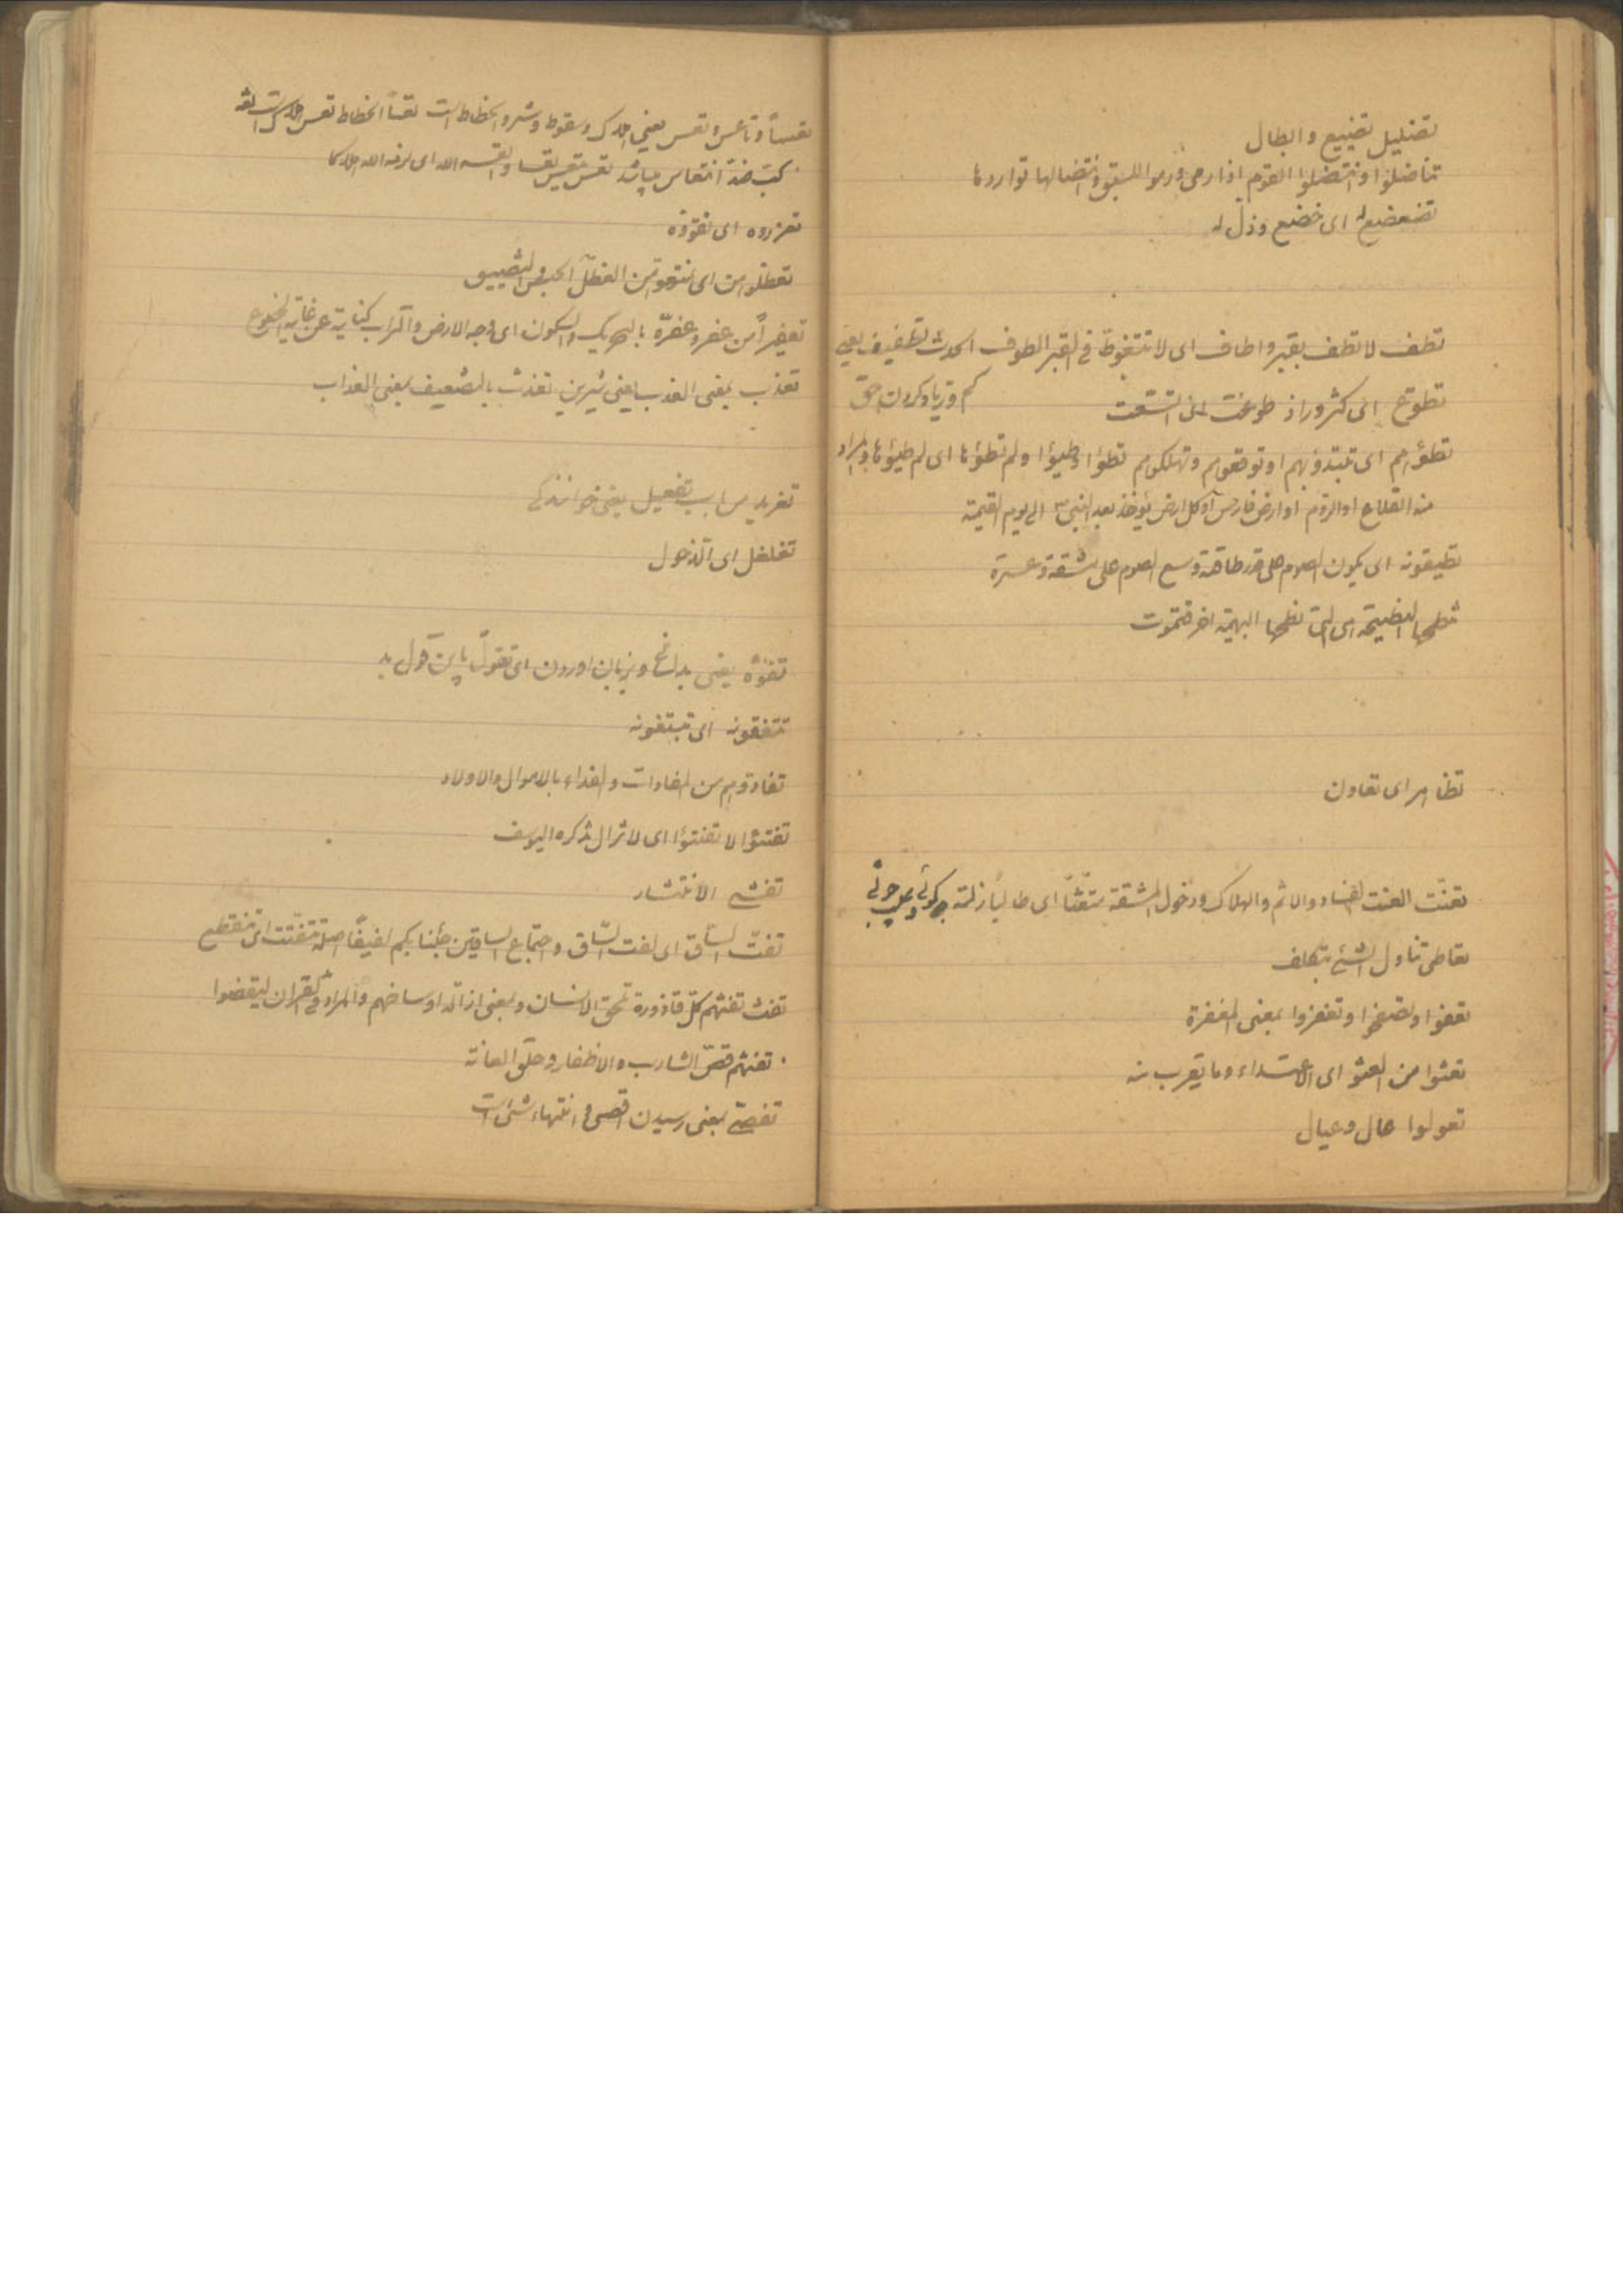 تضلیل تضییع و ابطال
تناضلوا و انتضلوا القوم اذا رمی و رموا للسبق و انتضالها تواردها
تضعضع له ای خضع و ذل له
تطف لا تطف بقبر و اطاف ای لا تتغوط فی القبر الطوف الحدث تطفیف یعنی
کم و زیاد کردن حق
تطوع ای کثر و زاد طوعت ای اتسعت
تطؤهم ای تبتدؤبهم او توقعوهم و تهلکوهم تطؤا وطیؤا و لم تطؤها ای لم طیؤها و المراد
منه القلاع او الروم او ارض فارس او کل ارض یؤخذ بعد النبی ص الی یوم القیمة
تطیقونه ای یکون الصوم علی قدر طاقته وسع الصوم علی مشقة و عسرة
نطحها النطیحة ای التی نطحها البهیمة اخر فتموت
تظاهر ای تعاون
تعنّت العنت الفساد و الاثم و الهلاک و دخول المشقة متعنّتاً ای طالباً زلته
تعاطی تناول الشئ بتکلف
تعفوا و تصفحوا و تغفروا بمعنی المغفرة
تعثوا من العثو ای الاعتداء و ما یقرب منه
تعولوا عال و عیال
تعساً و تاعس و تعس یعنی هلاک و سقوط و شر و انحطاط است تعساً انحطاط تعس هلاکت است
کبّ ضدّ انتعاش میباشد تعس یتعس تعسا و اتعسه الله ای لزمه الله هلاکا
تعزروه ای تقووه
تعضلوهن ای تمنعوهن من العضل الحبس و التضییق
تعفیراً من عفر و عفرة بالتحریک و السکون ای وجه الارض و التراب کنایة عن غایة الخضوع
تعذب بمعنی العذب یعنی شیرین تعذب بالتضعیف بمعنی العذاب
تغرید من باب تفعیل یعنی خوانندگی
تغلغل ای الدخول
تفوّه یعنی بدهان و بزبان اوردن ای تقوّل باین قول بد
تتفقونه ای تبتغونه
تفادوهم من المفادات و الفداء بالاموال و الاولاد
تفتئوا لا تفتئوا ای لا تزال بذکره الیوسف
تفشی الانتشار
تفتّ السّاق ای لفت السّاق و اجتماع الساقین جئنا بکم لفیفاً اصله تتفتت ای تنقطع
تفث تفثهم کلّ قاذورة تلحق الانسان و بمعنی ازالة اوساخهم و المراد فی القران لیقضوا
تفثهم قصّ الشارب و الاظفار و حلق العانة
تفصّی بمعنی رسیدن اقصی و انتهاء شئ است